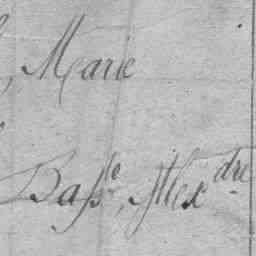 , Marie
Bass^le, Alex^dre